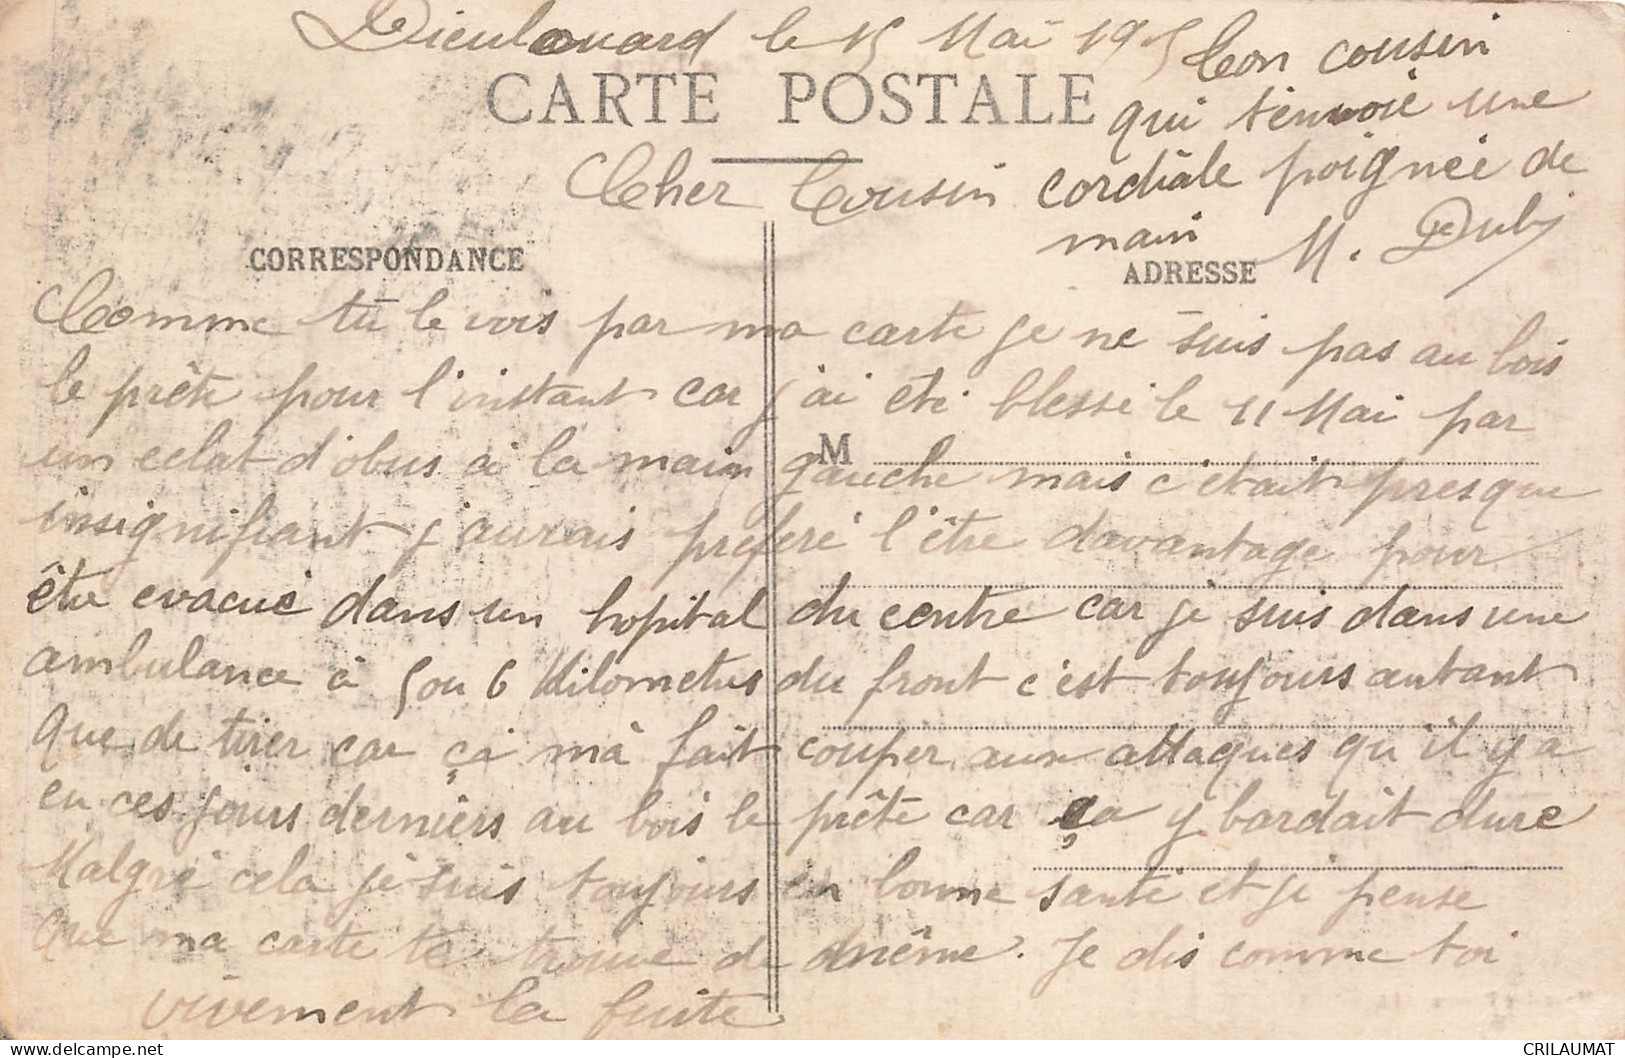 Dieulouard le 15 Mai 1915
CARTE POSTALE
Cher Cousin
CORRESPONDANCE
ADRESSE
M
Comme tu le vois par ma carte je ne suis pas au bois
le prêtre pour l'instant car j'ai été blessé le 11 Mai par
un eclat d'obus à la main gauche mais c'était presque
insignifiant j'aurais preferé l'être davantage pour
être evacué dans un hopital du centre car je suis dans une
ambulance à 5 ou 6 Kilometres du front c'est toujours autant
que de tirer car çà mà fait couper aux attaques qu'il y a
eu ces jours derniers au bois le prêtre car ça y bardait dure
Malgré cela je suis toujours en bonne santé et je pense
que ma carte te trouve de même. Je dis comme toi
vivement la fuite
Ton cousin
qui t'envoie une
cordiale poignée de
main
M.